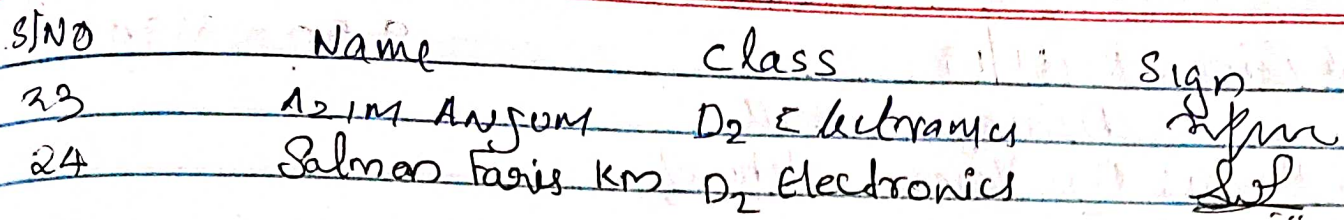 S/NO Name Class Sign
23 AZIM ANJUM D2 Electronics
24 Salman Faris KM D2 Electronics